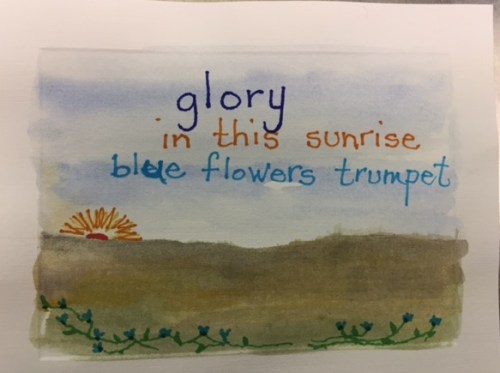 glory
in this sunrise
blue flowers trumpet